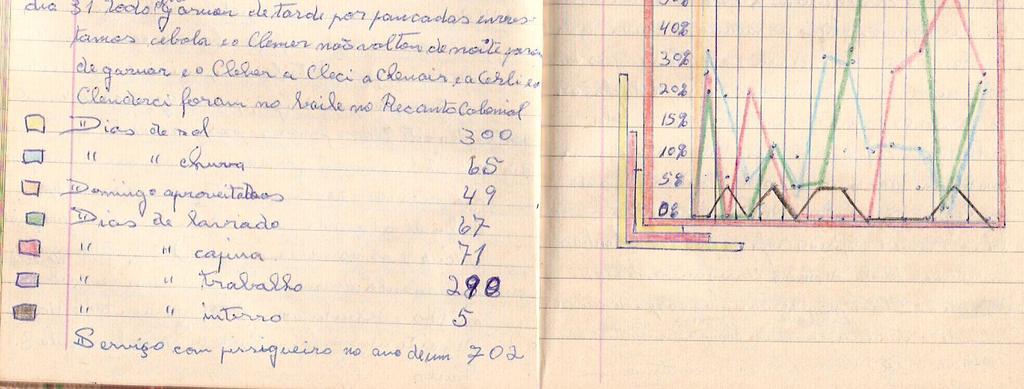 dia 31 todo garuou de tarde por pancadas enres-
tamos cebola e o Clemer não voltou de noite parou
de garuar e o Cleber a Cleci a Clenair e a Cerli e o
Clenderci foram no baile no Recanto Colonial
Dias de sol 300
" " chuva 65
Domingo aproveitados 49
Dias de lavrado 67
" " capina 71
" " trabalho 298
" " interro 5
Serviço com pirigueiro no ano de um 702
40%
30%
20%
15%
10%
5%
0%